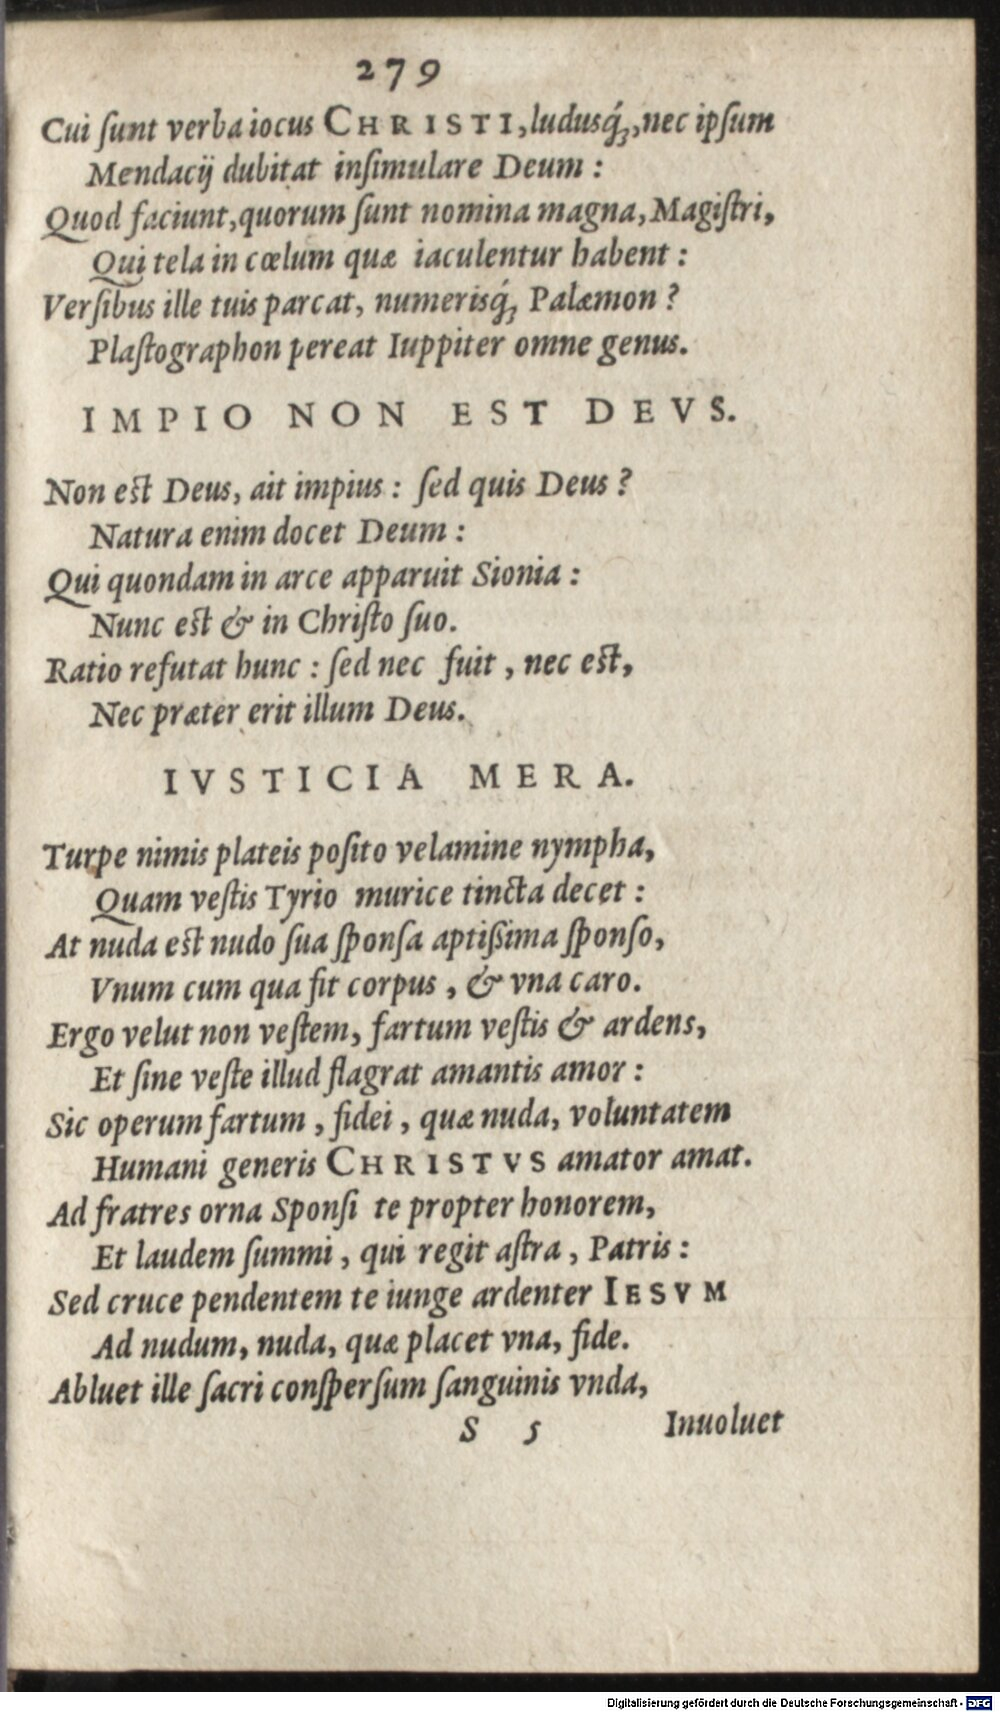 279
Cui ſunt verba iocus CHRISTI, ludusq́;, nec ipſum
Mendacij dubitat inſimulare Deum :
Quod faciunt, quorum ſunt nomina magna, Magiſtri,
Qui tela in cœlum quæ iaculentur habent :
Verſibus ille tuis parcat, numerisq́; Palæmon ?
Plaſtographon pereat Iuppiter omne genus.
IMPIO NON EST DEVS.
Non eſt Deus, ait impius : ſed quis Deus ?
Natura enim docet Deum :
Qui quondam in arce apparuit Sionia :
Nunc eſt & in Chriſto ſuo.
Ratio refutat hunc : ſed nec fuit , nec eſt,
Nec præter erit illum Deus.
IVSTICIA MERA.
Turpe nimis plateis poſito velamine nympha,
Quam veſtis Tyrio murice tincta decet :
At nuda eſt nudo ſua ſponſa aptißima ſponſo,
Vnum cum qua fit corpus , & vna caro.
Ergo velut non veſtem, fartum veſtis & ardens,
Et ſine veſte illud flagrat amantis amor :
Sic operum fartum , fidei , quæ nuda, voluntatem
Humani generis CHRISTVS amator amat.
Ad fratres orna Sponſi te propter honorem,
Et laudem ſummi , qui regit aſtra , Patris :
Sed cruce pendentem te iunge ardenter IESVM
Ad nudum, nuda, quæ placet vna, fide.
Abluet ille ſacri conſperſum ſanguinis vnda,
S 5 Inuoluet
Digitalisierung gefördert durch die Deutsche Forschungsgemeinschaft - DFG